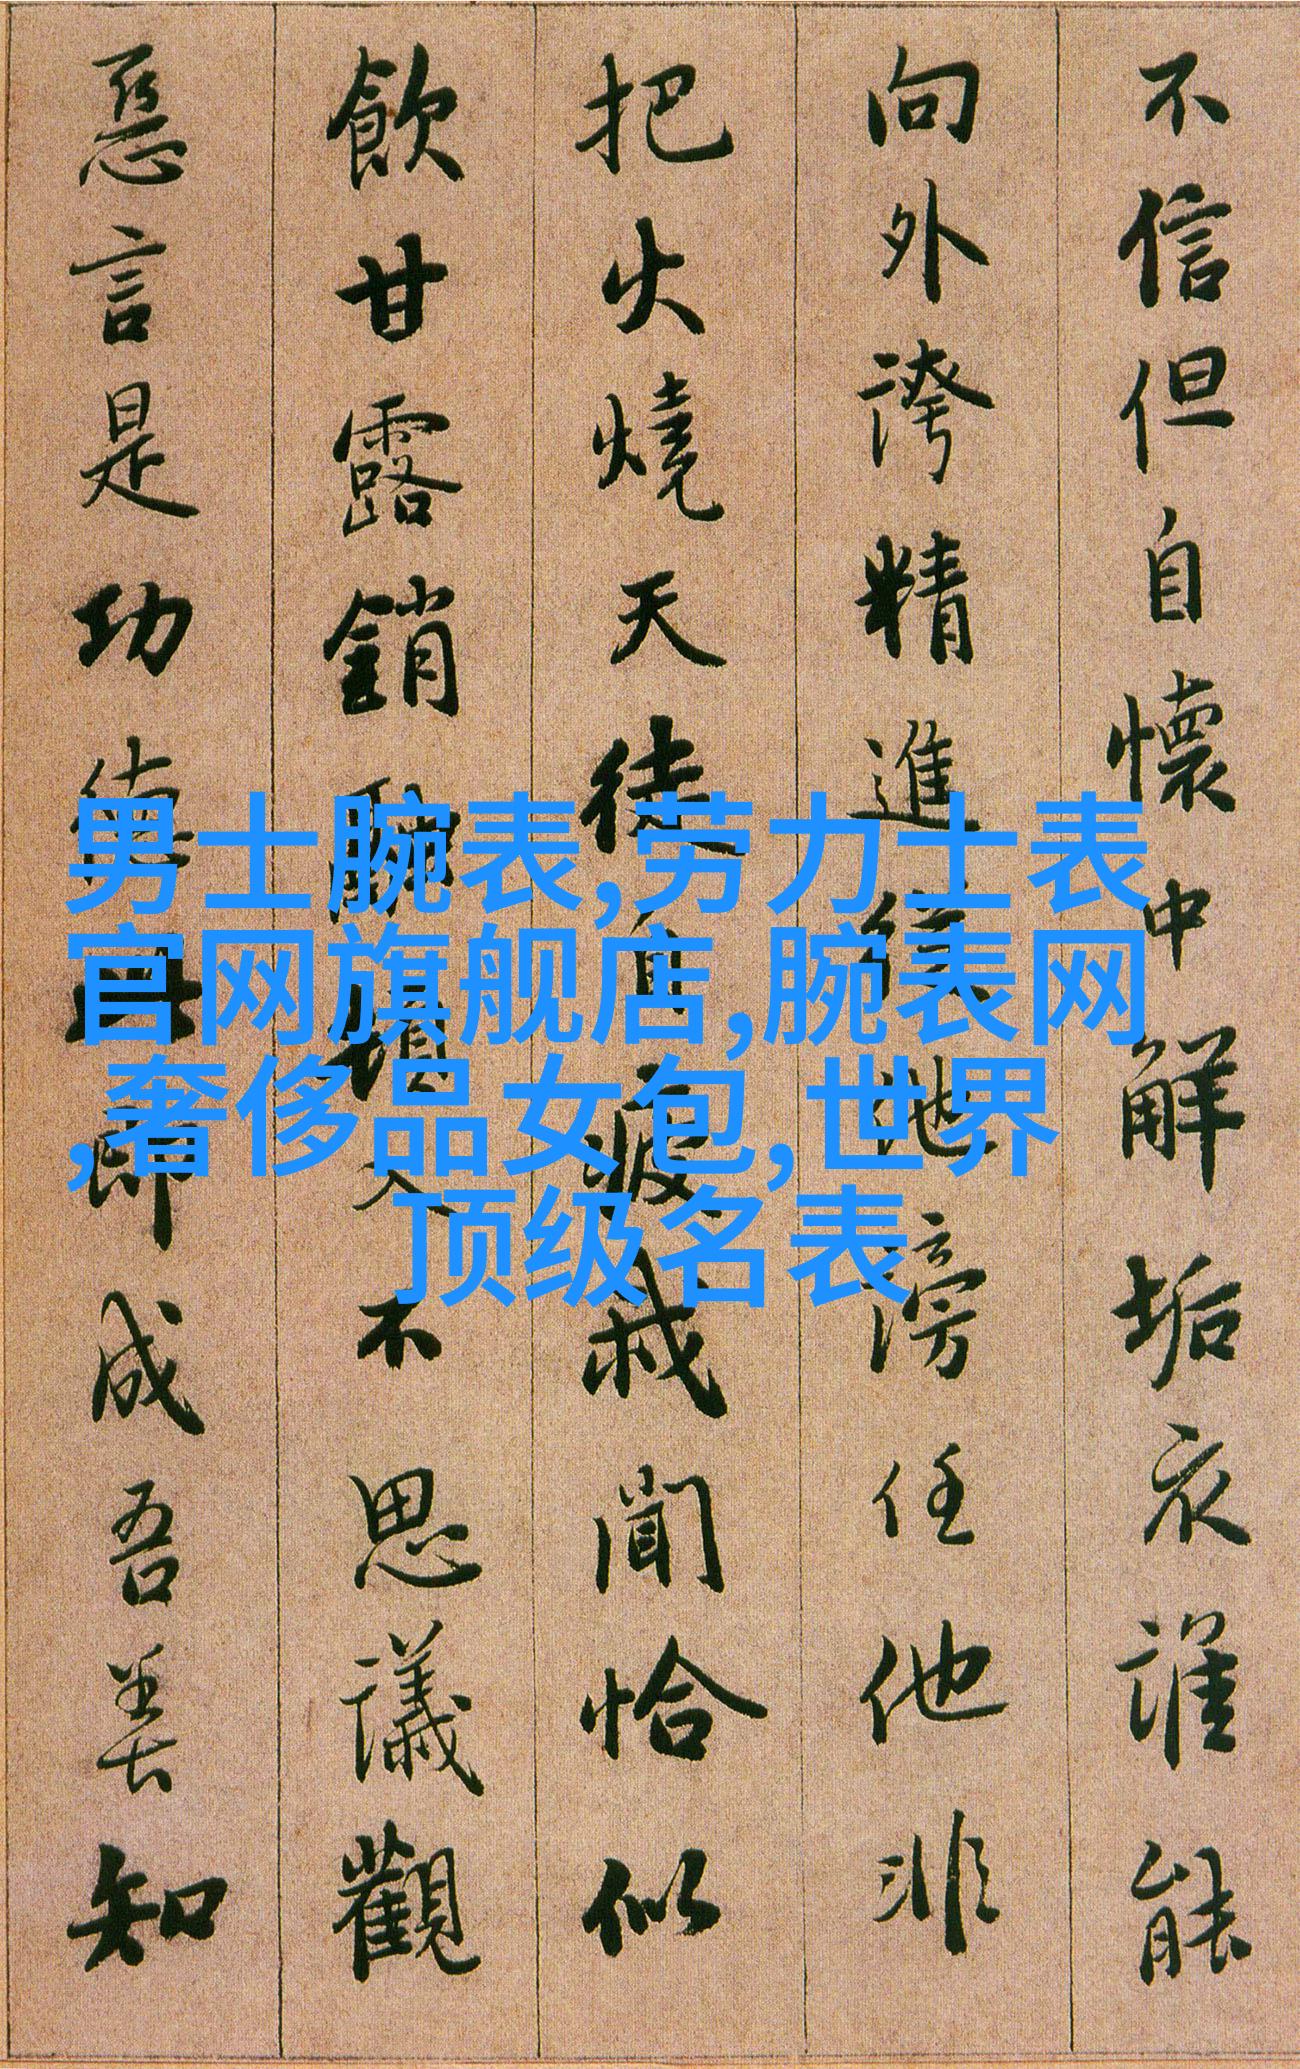 不信但自懷中解垢衣誰能
向外誇精進從他謗任他非
把火燒天徒自疲我聞恰似
飲甘露銷融頓入不思議觀
惡言是功德此即成吾善知
男士腕表,劳力士表
官网旗舰店,腕表网
,奢侈品女包,世界
顶级名表